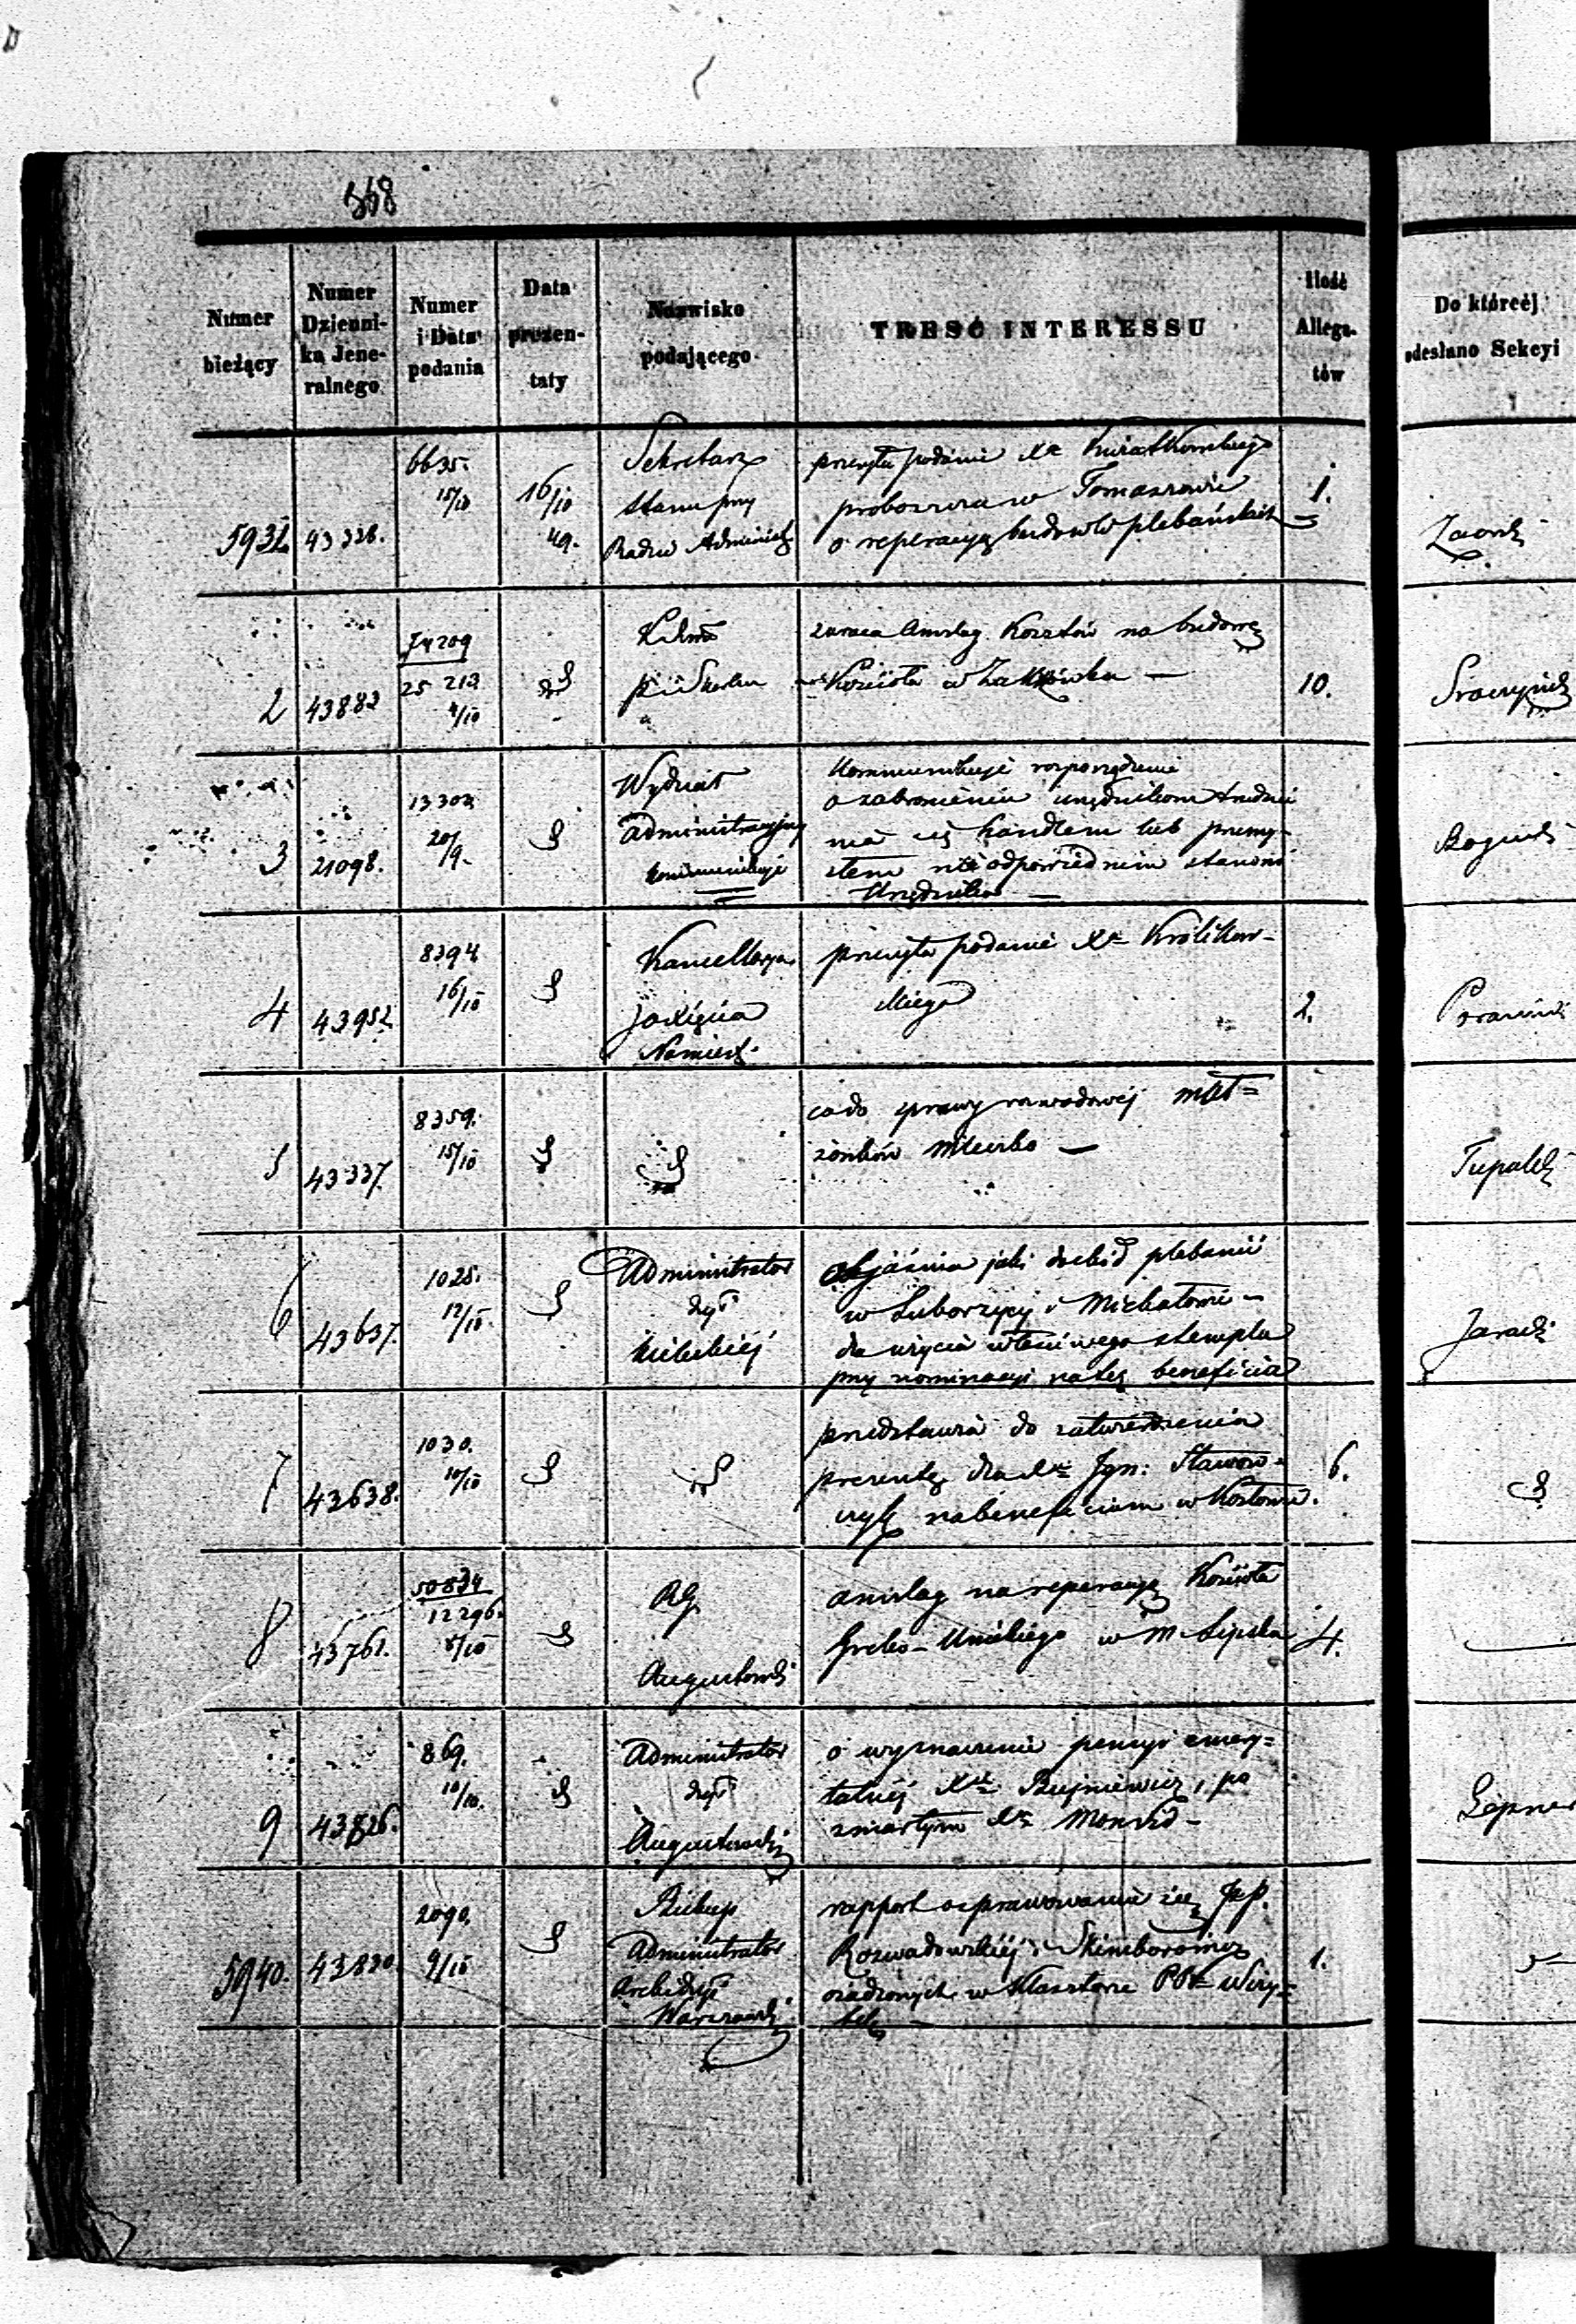 348
Numer bieżący
Numer Dzienni-ka Jene-ralnego
Numer i Data podania
Data prezen-taty
Nazwisko podającego
TREŚĆ INTERESSU
Ilość Allega-tów
Do któreéj odesłano Sekcyi
5931. 43328.
6635.
15/10
16/10
49.
Sekretarz
Stanu przy
Radzie Administ.
przesyła podanie Xa Kwiatkowskiego
proboszcza w Tomaszowie
o reperacyą budowli plebańskich
1.
2 43883
74209
25 213
4/10
zwraca Anszlag Kosztów na budowę
Kościoła w Zakrzówku —
10.
3 21098.
13302.
20/9.
Wydział
Administracyjny
kommunikuje
Kommunikuje rozporządzenie
o zabronieniu urzędnikom trudnie
nia się handlem lub przemy-
słem nieodpowiednim stanowi
Urzędnika —
4 43952
8394.
16/10
Kancellarya
JO Xięcia
Namiest.
przesyła podanie Xa Królikow-
skiego
2.
5 43337.
8359.
15/10
co do sprawy rozwodowéj mał=
żonków —
6 43637.
1025.
12/10.
Administrator
dyec.
Kieleckiéj
objaśnia jaki dochód plebanii
w Luborzycy i Michałowie —
do użycia właściwego stempla
przy nominacyi na te beneficia
7 43638.
1030.
10/10
przedstawia do zatwierdzenia
prezentę dla Xa Ign: Stawow-
czyk na beneficium w Kozłowie.
6.
8 43761.
50834
12296.
5/10
RG
Augustowski
anszlag na reperacyą Kościoła
Greko-Unickiego w M. Lipsku
4.
9 43826.
869.
10/10.
Administrator
dyec.
Augustowskiéj
o wyznaczenie pensyi emery=
talnéj Xa Bujniewicz, po
zmarłym Xa Monwid —
5940. 43830.
2090.
9/10
Biskup
Administrator
Archidyec.
Warszawski
rapport o sprawowaniu się Józ.
Rozwadowskiéj i Skimborowicz
osadzonych w Klasztorze PP. Wizy=
tek —
1.